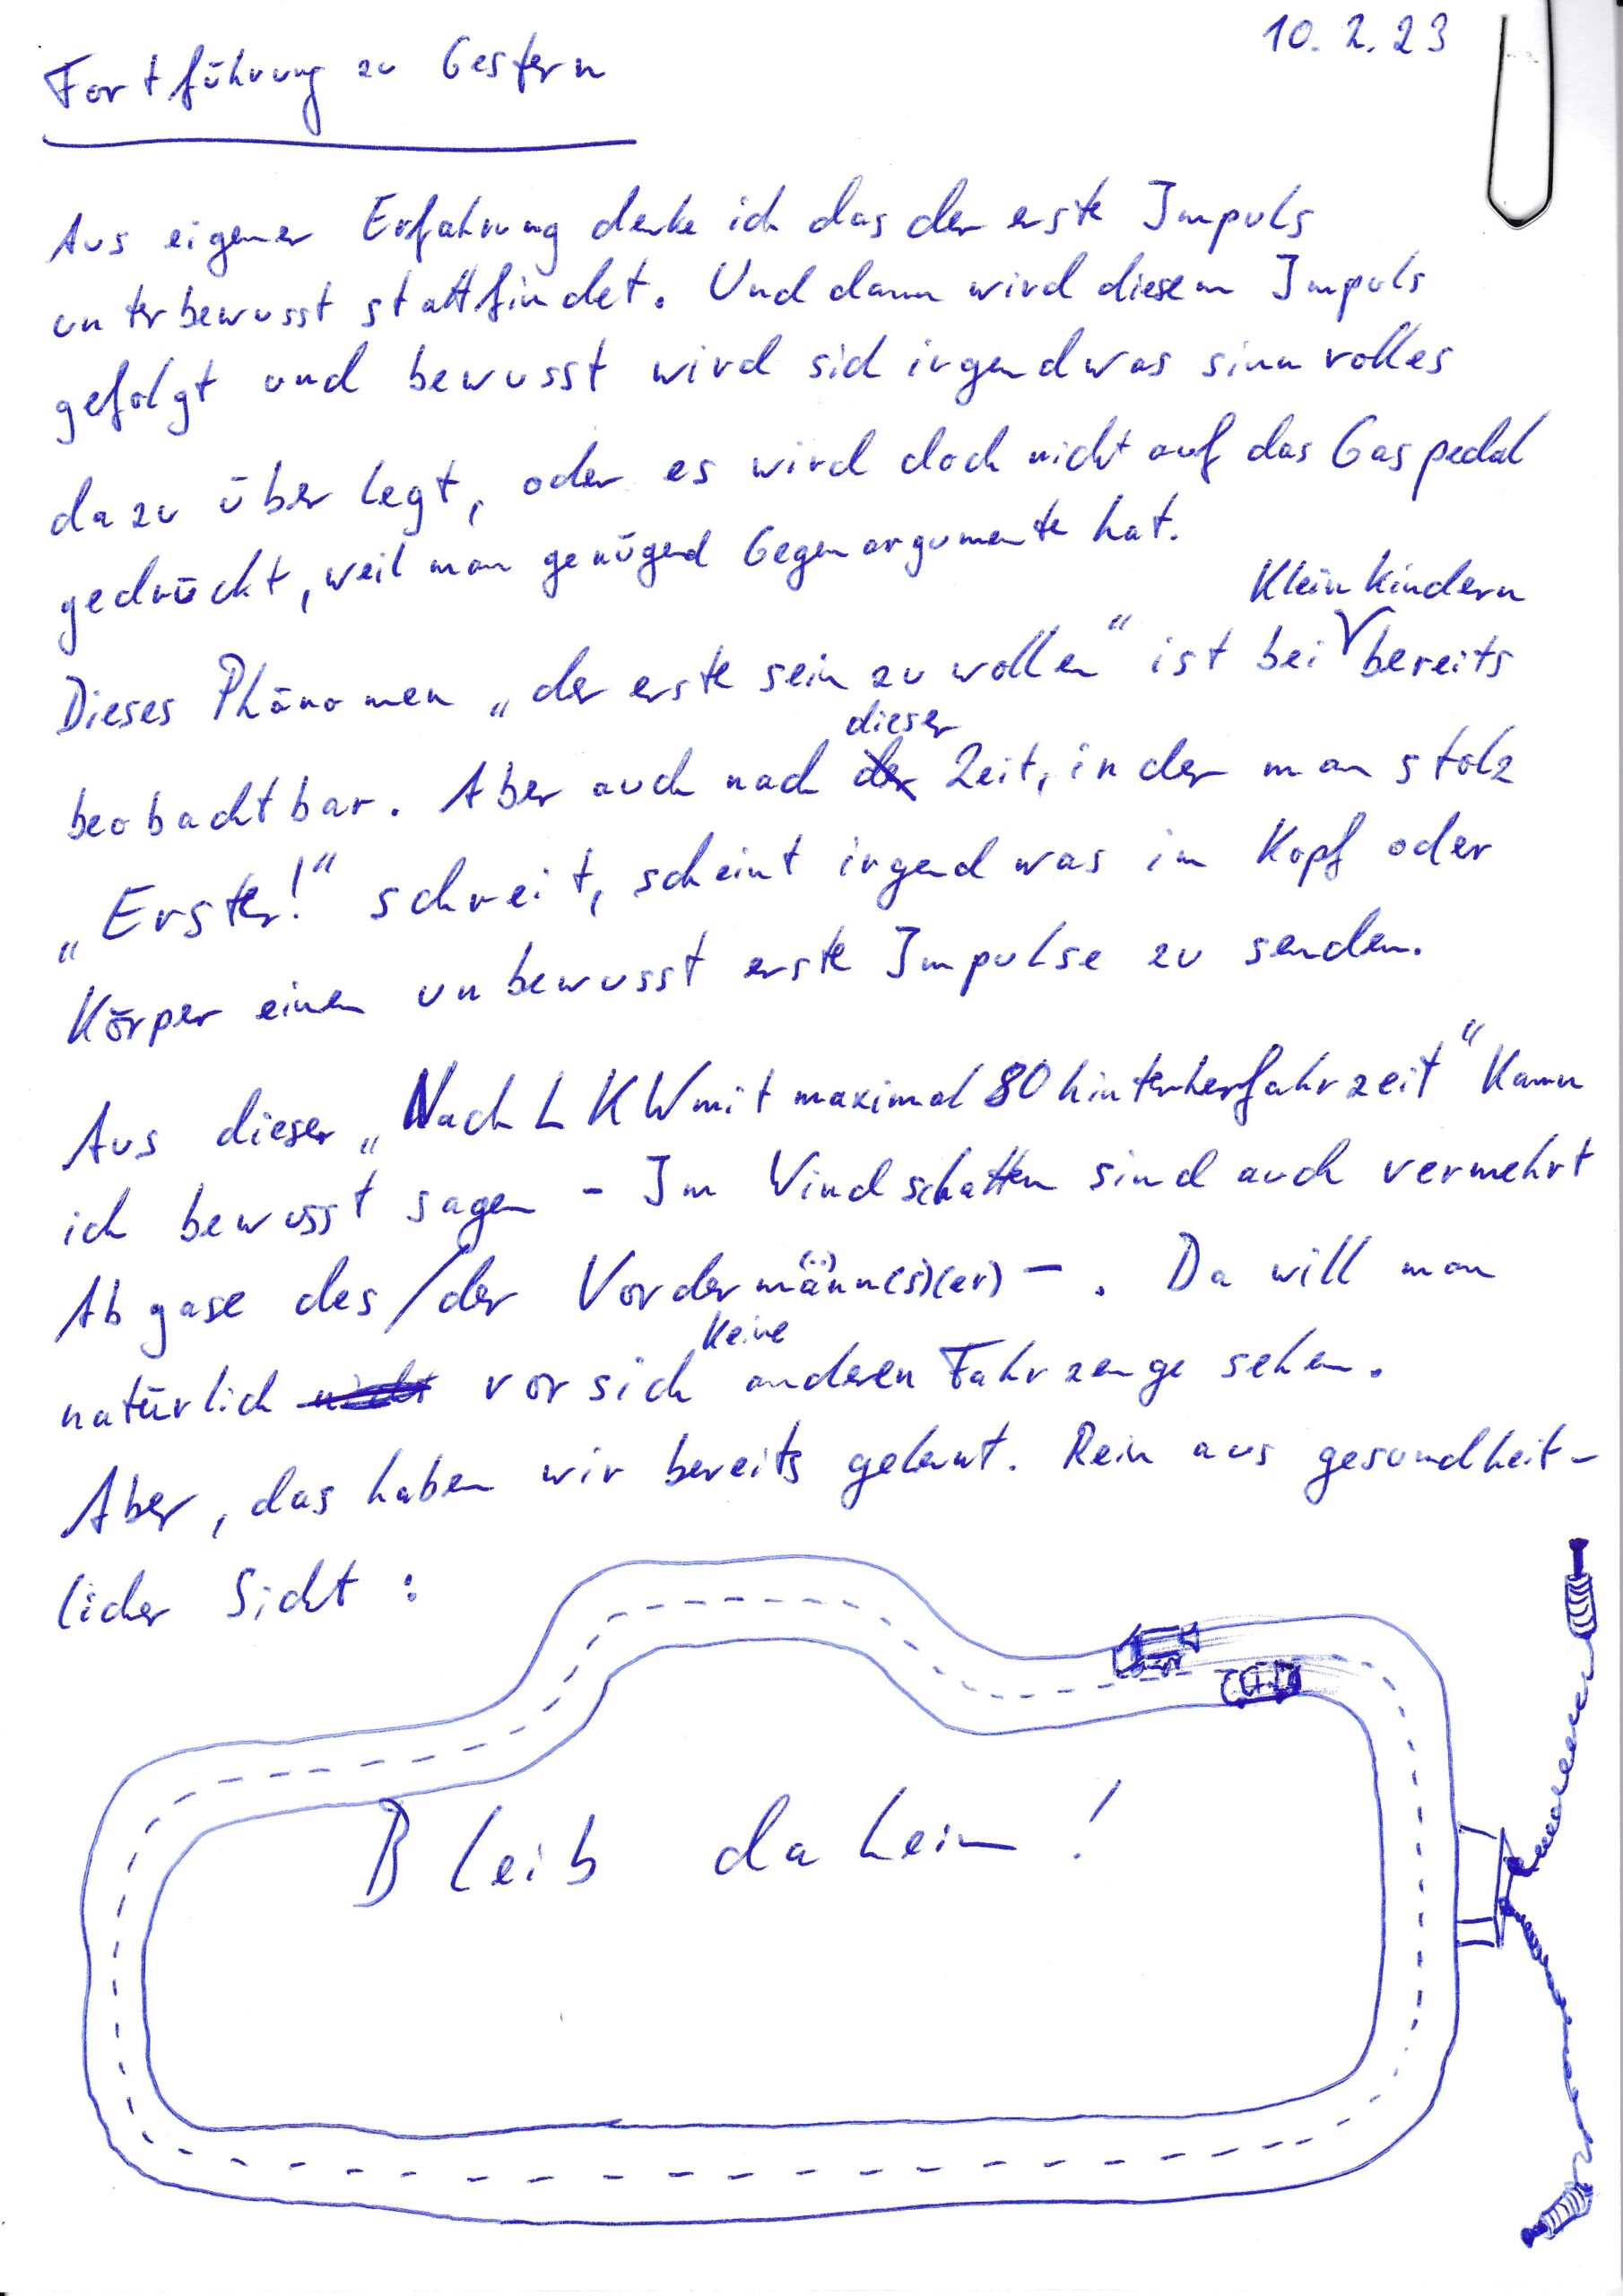 10.2.23
Fortführung zu Gestern
Aus eigener Erfahrung denke ich das der erste Impuls
unterbewusst stattfindet. Und dann wird diesem Impuls
gefolgt und bewusst wird sich irgendwas sinnvolles
dazu überlegt, oder es wird doch nicht auf das Gaspedal
gedrückt, weil man genügend Gegenargumente hat.
Kleinkindern
Dieses Phänomen „der erste sein zu wollen“ ist bei bereits
dieser
beobachtbar. Aber auch nach der Zeit, in der man stolz
„Erster!“ schreit, scheint irgendwas im Kopf oder
Körper einen unbewusst erste Impulse zu senden.
Aus dieser „Nach LKW mit maximal 80 hinterherfahrzeit“ kann
ich bewusst sagen - Im Windschatten sind auch vermehrt
Abgase des/der Vordermä(̈)nn(s)(er) - . Da will man
keine
natürlich nicht vor sich anderen Fahrzeuge sehen.
Aber, das haben wir bereits gelernt. Rein aus gesundheit-
licher Sicht :
Bleib daheim!